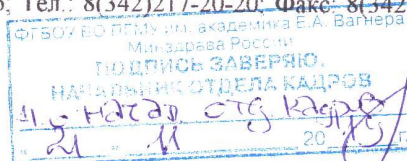 Тел.: 8(342)217-20-20; Факс: 8(342
ФГБОУ ВО ПГМУ им. академика Е.А. Вагнера
Минздрава России
ПОДПИСЬ ЗАВЕРЯЮ.
НАЧАЛЬНИК ОТДЕЛА КАДРОВ
отд кадров
"21" 11 20 г.